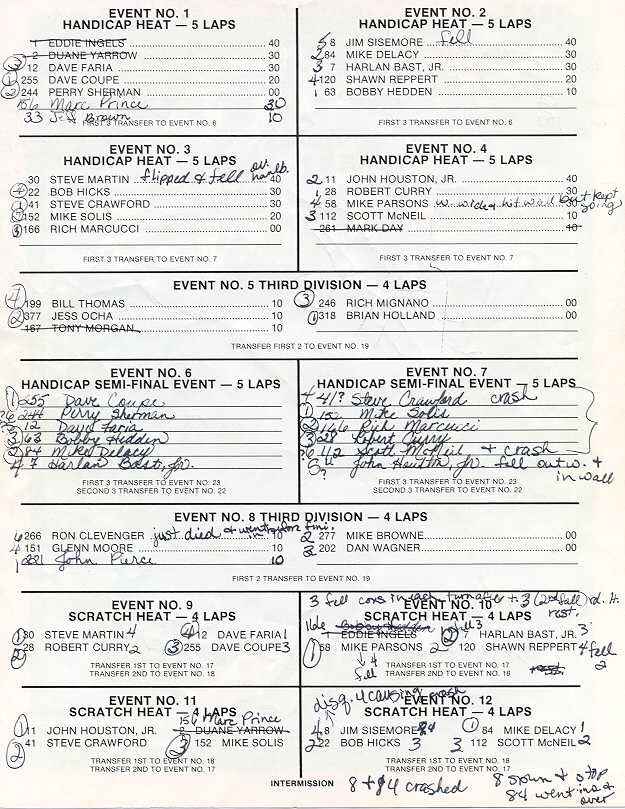 EVENT NO. 1
HANDICAP HEAT — 5 LAPS
1 EDDIE INGELS 40
2 DUANE YARROW 30
3 12 DAVE FARIA 30
1 255 DAVE COUPE 20
2 244 PERRY SHERMAN 00
156 Marc Prince 30
33 Jeff Brown 10
FIRST 3 TRANSFER TO EVENT NO. 6
EVENT NO. 2
HANDICAP HEAT — 5 LAPS
5 8 JIM SISEMORE fell 40
2 84 MIKE DELACY 30
3 7 HARLAN BAST, JR. 30
4 120 SHAWN REPPERT 20
1 63 BOBBY HEDDEN 10
FIRST 3 TRANSFER TO EVENT NO. 6
EVENT NO. 3
HANDICAP HEAT — 5 LAPS
30 STEVE MARTIN flipped & fell ov. hanlb. 40
4 22 BOB HICKS 30
1 41 STEVE CRAWFORD 30
2 152 MIKE SOLIS 20
3 166 RICH MARCUCCI 00
FIRST 3 TRANSFER TO EVENT NO. 7
EVENT NO. 4
HANDICAP HEAT — 5 LAPS
2 11 JOHN HOUSTON, JR. 40
1 28 ROBERT CURRY 30
4 58 MIKE PARSONS w. wide & hit wall but kept going 30
3 112 SCOTT McNEIL 10
261 MARK DAY 10
FIRST 3 TRANSFER TO EVENT NO. 7
EVENT NO. 5 THIRD DIVISION — 4 LAPS
4 199 BILL THOMAS 10
2 377 JESS OCHA 10
167 TONY MORGAN 10
3 246 RICH MIGNANO 00
1 318 BRIAN HOLLAND 00
TRANSFER FIRST 2 TO EVENT NO. 19
EVENT NO. 6
HANDICAP SEMI-FINAL EVENT — 5 LAPS
1 255 Dave Coupe
6 244 Perry Sherman
5 12 Dave Faria
3 63 Bobby Hedden
2 84 Mike Delacy
4 7 Harlan Bast, Jr.
FIRST 3 TRANSFER TO EVENT NO. 23
SECOND 3 TRANSFER TO EVENT NO. 22
EVENT NO. 7
HANDICAP SEMI-FINAL EVENT — 5 LAPS
4 41? Steve Crawford crash
1 152 Mike Solis
2 166 Rich Marcucci
3 28 Robert Curry
?6 112 Scott McNeil & crash
5 11 John Houston, Jr. fell out w. &
? in wall
FIRST 3 TRANSFER TO EVENT NO. 23
SECOND 3 TRANSFER TO EVENT NO. 22
EVENT NO. 8 THIRD DIVISION — 4 LAPS
266 RON CLEVENGER just died & went in 10
4 151 GLENN MOORE 10
1 John Pierce 10
2 277 MIKE BROWNE 00
3 202 DAN WAGNER 00
FIRST 2 TRANSFER TO EVENT NO. 19
EVENT NO. 9
SCRATCH HEAT — 4 LAPS
1 30 STEVE MARTIN 4
2 28 ROBERT CURRY 2
4 12 DAVE FARIA 1
3 255 DAVE COUPE 3
TRANSFER 1ST TO EVENT NO. 17
TRANSFER 2ND TO EVENT NO. 18
3 fell cons in each turn after & 3 (2nd fall) rd. H. rest.
EVENT NO. 10
SCRATCH HEAT — 4 LAPS
Bobby Hedden
EDDIE INGELS
1 58 MIKE PARSONS 2
4 fell
2 7 HARLAN BAST, JR. 3
120 SHAWN REPPERT 4 fell
2
TRANSFER 1ST TO EVENT NO. 17
TRANSFER 2ND TO EVENT NO. 18
EVENT NO. 11
SCRATCH HEAT — 4 LAPS
156 Marc Prince
1 11 JOHN HOUSTON, JR.
2 DUANE YARROW
2 41 STEVE CRAWFORD
3 152 MIKE SOLIS
TRANSFER 1ST TO EVENT NO. 17
TRANSFER 2ND TO EVENT NO. 18
disq. 4 causing crash
EVENT NO. 12
SCRATCH HEAT — 4 LAPS
4 8 JIM SISEMORE 4
1 84 MIKE DELACY 1
2 22 BOB HICKS 3
3 112 SCOTT McNEIL 2
TRANSFER 1ST TO EVENT NO. 17
TRANSFER 2ND TO EVENT NO. 18
INTERMISSION
8 & 84 crashed
8 spun & stop
84 went into & over